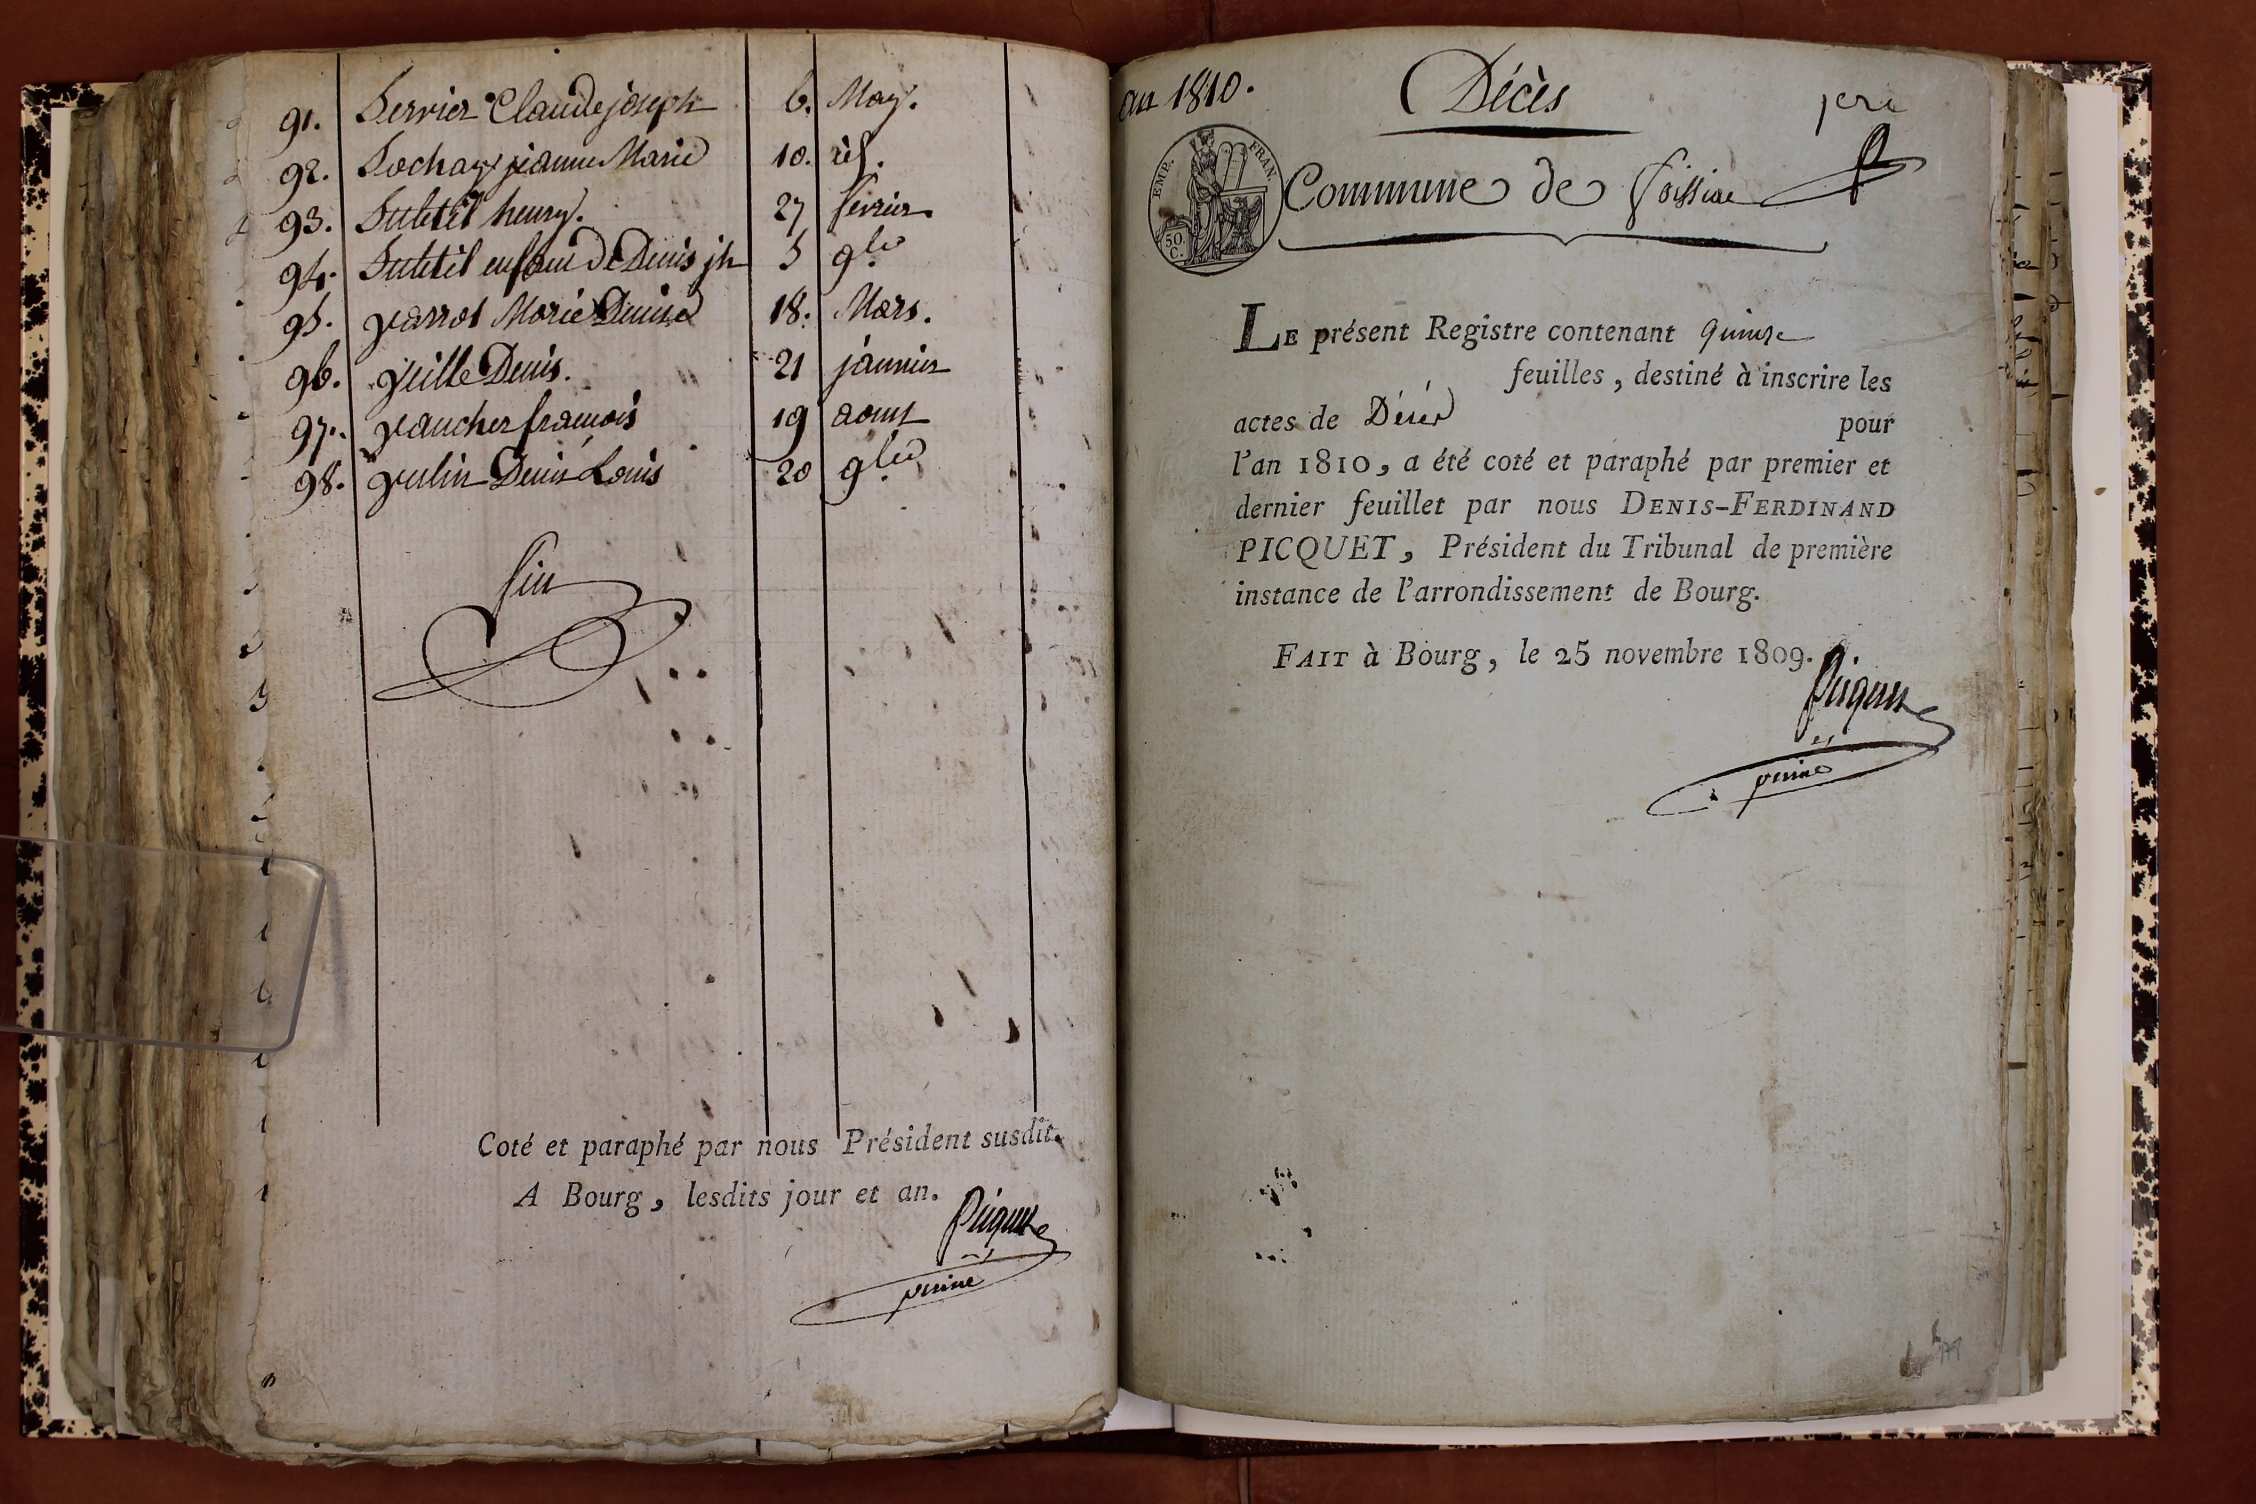 91. Servier Claude joseph 6. May.
92. Sochay jeanne Marie 10. id.
93. Subtil henry. 27 fevrier.
94. Subtil enfant de Denis jh 5 9bre
95. varrot Marie Denise 18. Mars.
96. veille Denis. 21 janvier
97. vaucher francois 19 aout
98. vulin Denis Louis 20 9bre
fin
Coté et paraphé par nous Président susdit.
A Bourg, lesdits jour et an.
Picquet
an 1810.
Décès
EMP. FRAN.
50. C.
Commune de foissiat
LE présent Registre contenant quinze
feuilles, destiné à inscrire les
actes de Décès pour
l'an 1810, a été coté et paraphé par premier et
dernier feuillet par nous DENIS-FERDINAND
PICQUET, Président du Tribunal de première
instance de l'arrondissement de Bourg.
FAIT à Bourg, le 25 novembre 1809.
Picquet